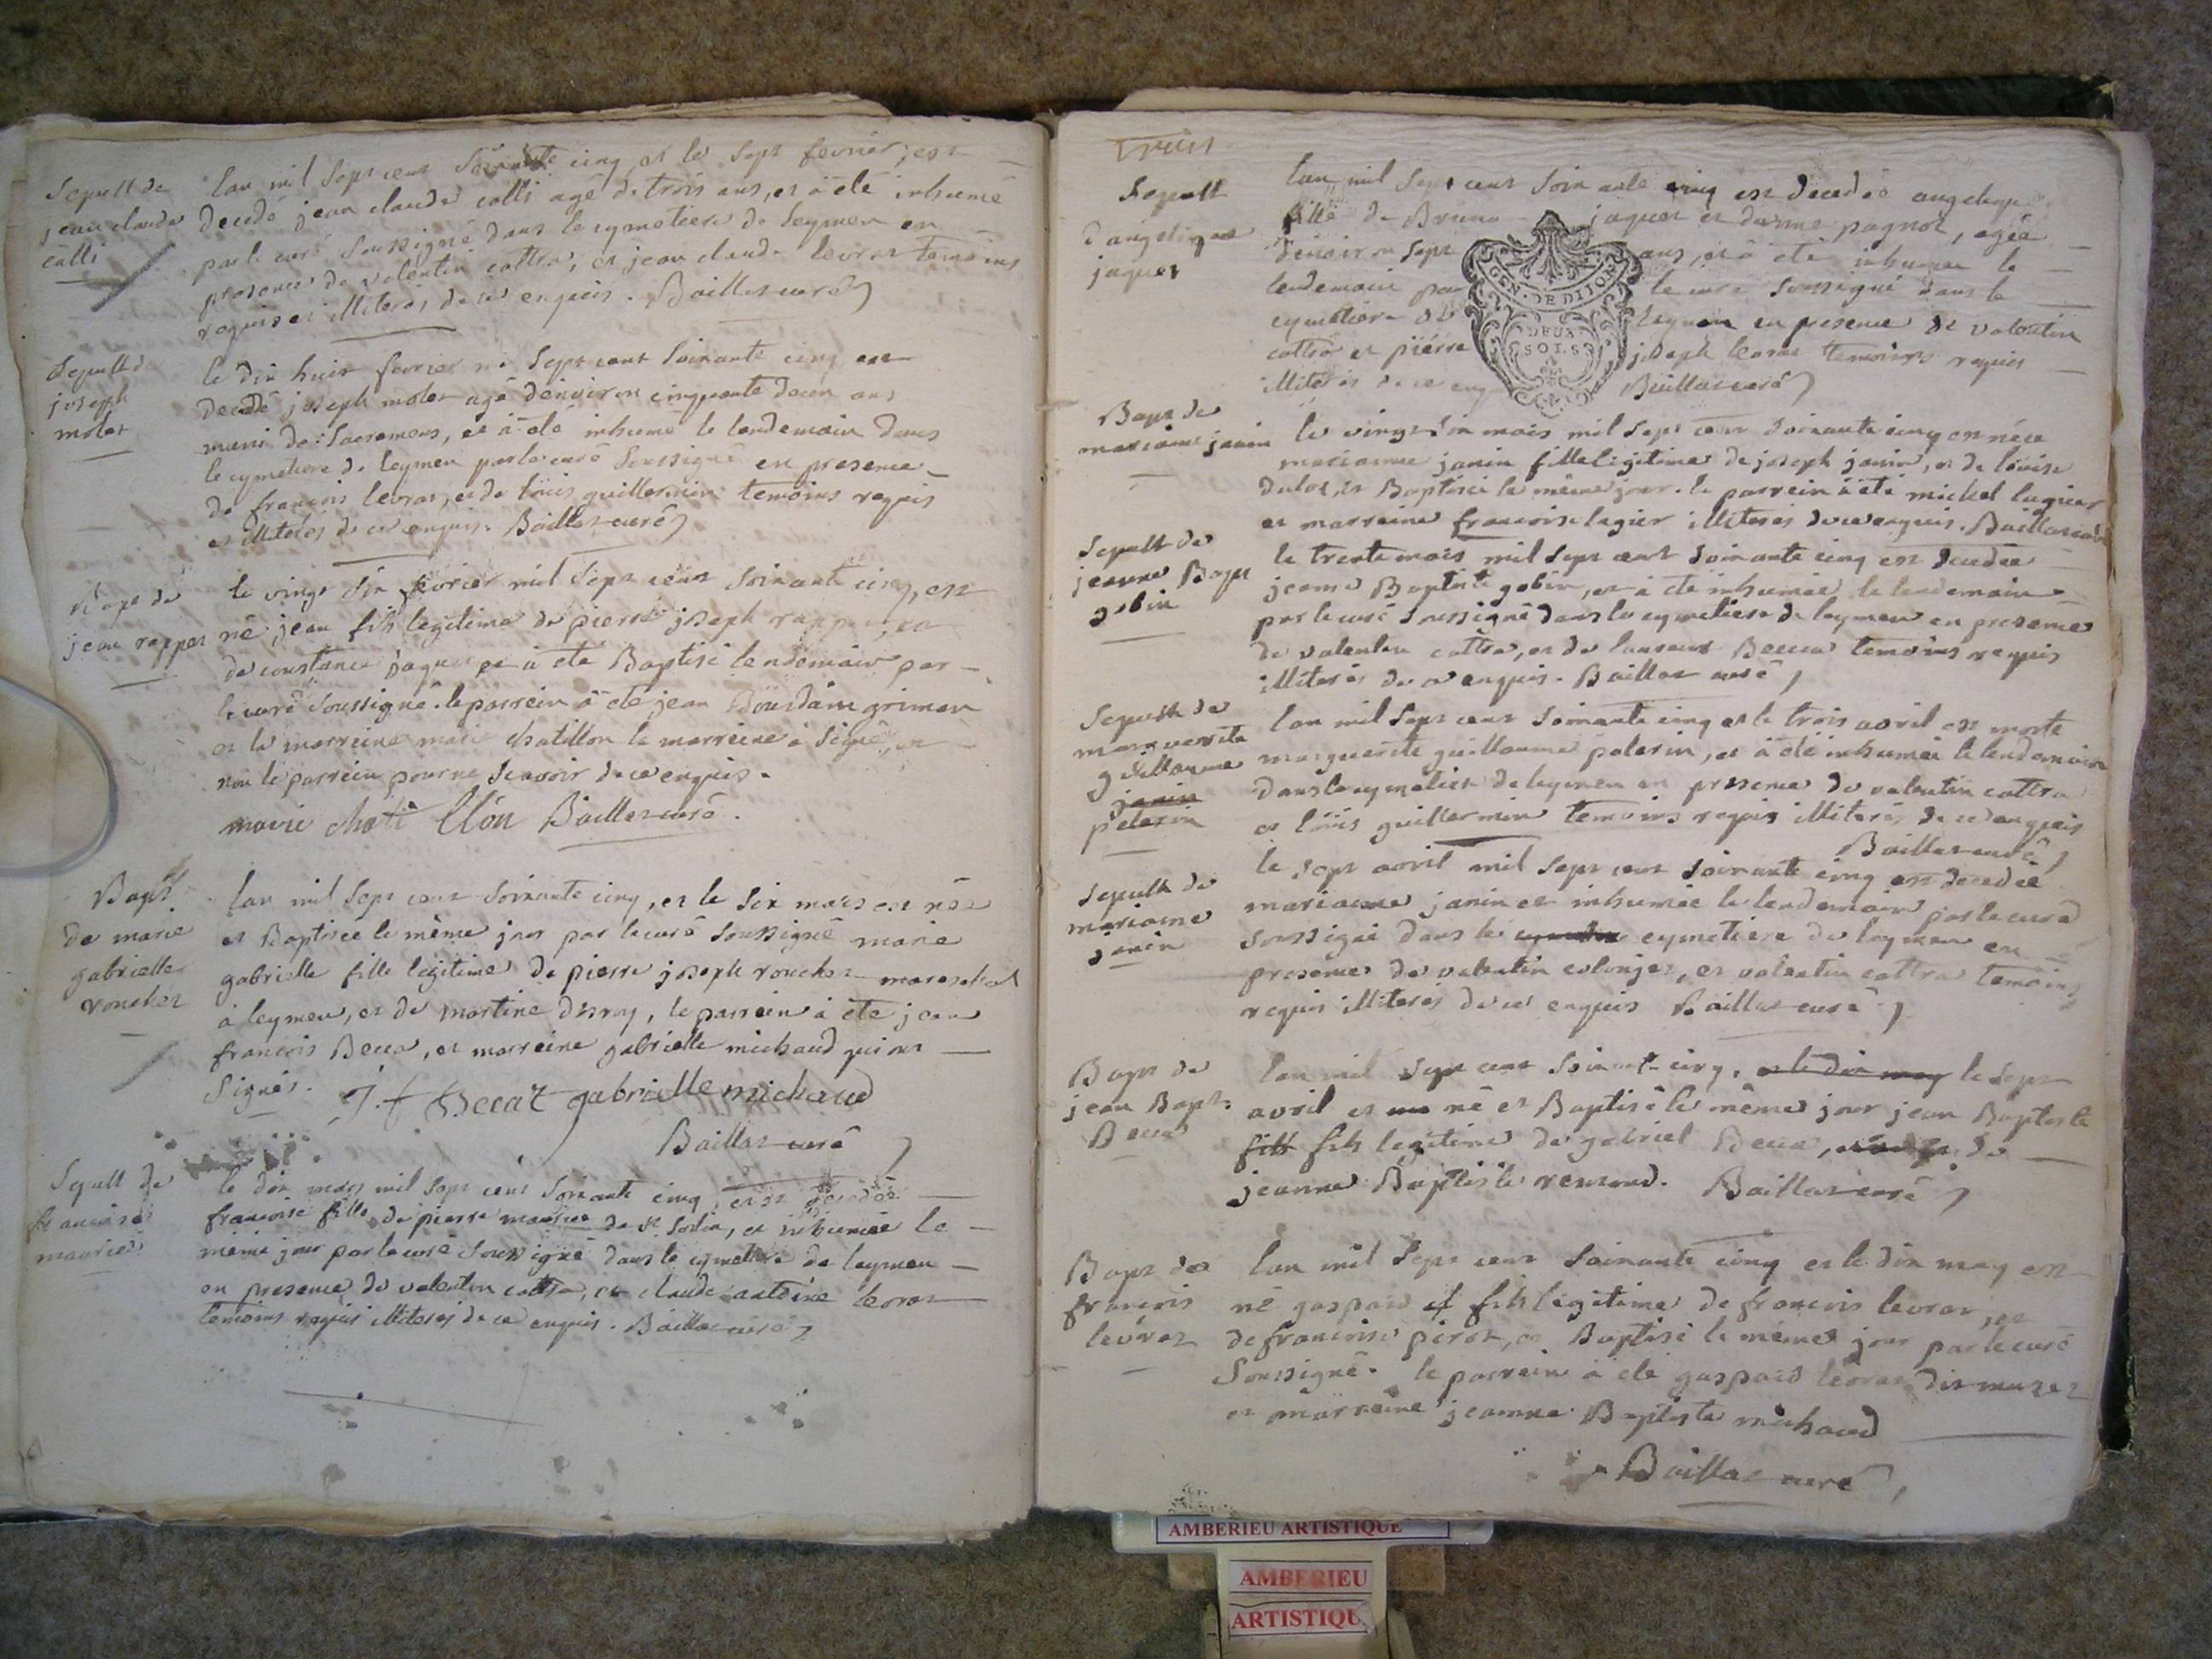 Sepult de
jean claude
calli
lan mil sept cent soixante cinq et le sept fevrier, est
decedé jean claude calli agé de trois ans, et à été inhumé
par le curé soussigné dans le cymetiere de leymen en
presence de valentin cottra, et jean claude levrat temoins
requis et illiterés de ce enquis. Baillat curé
Sepult de
joseph
molet
le dix huit fevrier mil sept cent soixante cinq est
decedé joseph molet agé d'environ cinquante deux ans
muni des sacremens, et à été inhumé le lendemain dans
le cymetiere de leymen par le curé soussigné en presence
de francois levrat, et de loüis guillermin temoins requis
et illiterés de ce enquis. Baillat curé
Bapt de
jean rappet
le vingt six fevrier mil sept cent soixante cinq, est
né jean fils legitime de pierre joseph rappet, et
de constance jaquet et à été Baptisé lendemain par
le curé soussigné. le parrein à été jean Dourdain griman
et la marreine marie chatillon la marreine à signé, et
non le parrein pour ne scavoir de ce enquis.
marie chatillon Baillat curé.
Bapt
de marie
gabrielle
rouchet
lan mil sept cent soixante cinq, et le six mars est née
et Baptisée le même jour par le curé soussigné marie
gabrielle fille legitime de pierre joseph rouchet mareschal
à leymen, et de martine duroy, le parrein à été jean
francois Becca, et marreine gabrielle michaud qui ont
signés. J. f Becat gabrielle michaud
Baillat curé
Sepult de
francoise
maurice
le dix mars mil sept cent soixante cinq, est decedée
francoise fille de pierre maurice de St Sorlin, et inhumée le
même jour par le curé soussigné dans le cymetiere de leymen
en presence de valentin cottra, et claude antoine levrat
temoins requis illiterés de ce enquis. Baillat curé
Sepult
d'angelique
jaquet
lan mil sept cent soixante cinq est decedée angelique
fille de Bruno jaquet et de pagnot, agée
d'environ sept ans, et à été inhumée le
lendemain par le curé soussigné dans le
cymetiere de leymen en presence de valentin
cottra et pierre joseph levrat temoins requis
illiterés de ce enquis Baillat curé
GEN. DE DIJON
DEUX
SOLS
Bapt de
marianne janin
le vingt six mars mil sept cent soixante cinq est née
marianne janin fille legitime de joseph janin, et de loüise
dulot, et Baptisée le même jour. le parrein à été michel lagier
et marreine francoise lagier illiterés de ce enquis. Baillat curé
Sepult de
jeanne Bapt
gobin
le trente mars mil sept cent soixante cinq est decedée
jeanne Baptiste gobin, et à été inhumée le lendemain
par le curé soussigné dans le cymetiere de leymen en presence
de valentin cottra, et de laurent Becca temoins requis
illiterés de ce enquis. Baillat curé
Sepult de
marguerite
guillaume
janin
pelerin
lan mil sept cent soixante cinq et le trois avril est morte
marguerite guillaume pelerin, et à été inhumée le lendemain
dans le cymetiere de leymen en presence de valentin cottra
et loüis guillermin temoins requis illiterés de ce enquis
Baillat curé
Sepult de
marianne
janin
le sept avril mil sept cent soixante cinq est decedée
marianne janin et inhumée le lendemain par le curé
soussigné dans le cymetiere de leymen en
presence de valentin colonjet, et valentin cottra temoins
requis illiterés de ce enquis Baillat curé
Bapt de
jean Bapt:
Becca
lan mil sept cent soixante cinq, et le dix may le sept
avril est né et Baptisé le même jour jean Baptiste
fils legitime de gabriel Becca, de
jeanne Baptiste remond. Baillat curé
Bapt de
francois
levrat
lan mil sept cent soixante cinq et le dix may est
né gaspard fils legitime de francois levrat, et
de francoise perot, et Baptisé le même jour par le curé
soussigné. le parrein à été gaspard levrat dit muset
et marreine jeanne Baptiste michaud
Baillat curé
AMBERIEU ARTISTIQUE
AMBERIEU
ARTISTIQUE